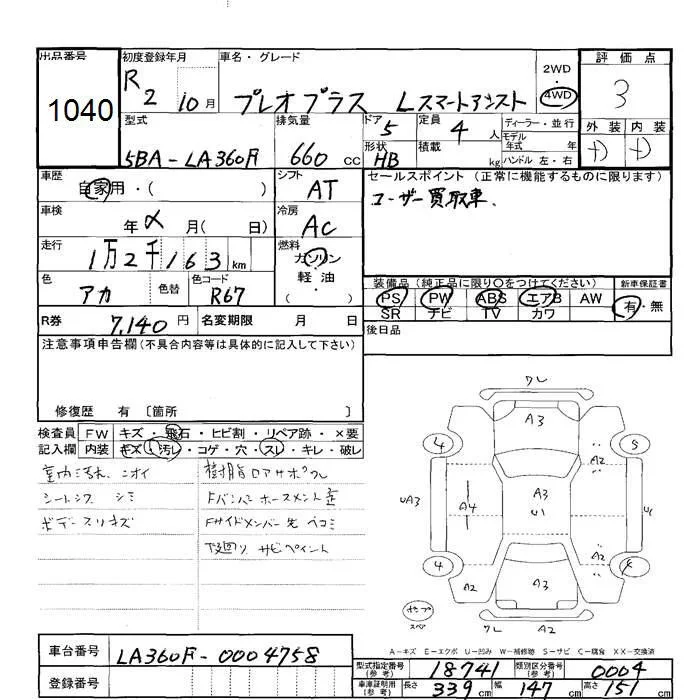 出品番号 初度登録年月 車名・グレード 評価点
1040 R2 10月 プレオプラス Lスマートアシスト 2WD 4WD 3
型式 排気量 ドア 5 定員 4人 ディーラー・並行 外装 内装
モデル年式 年
5BA-LA360F 660cc 形状 HB 積載 kg ハンドル 左・右
車歴 シフト セールスポイント(正常に機能するものに限ります)
自家用・( ) AT ユーザー買取車、
車検 冷房
年 月( 日) AC
走行 燃料
1万2千163km ガソリン
軽・油
色 色替 色コード ( )
アカ R67
装備品(純正品に限り○をつけてください) 新車保証書
PS PW ABS エアB AW 有・無
SR ナビ TV カワ
R券 7,140円 名変期限 月 日
後日品
注意事項申告欄(不具合内容等は具体的に記入して下さい)
修復歴 有〔箇所 〕
検査員 FW キズ・飛石・ヒビ割・リペア跡・×要
記入欄 内装 キズ・汚レ・コゲ・穴・スレ・キレ・破レ
室内汚れ ニオイ
シートシワ シミ
ボデースリキズ
Fバンパーホースメント歪
Fサイドメンバー先 ヘコミ
下廻り サビペイント
ワレ
A3
4 5
A2
UA3 A4 A3 U1 A2
4
A2 A3 A2
スペア
ワレ A2
A-キズ E-エクボ U-凹み W-補修跡 S-サビ C-腐食 XX-交換済
車台番号 LA360F-0004758
登録番号
型式指定番号(参考) 18741 類別区分番号(参考) 0004
車庫証明用(参考) 長さ 339cm 幅 147cm 高さ 151cm